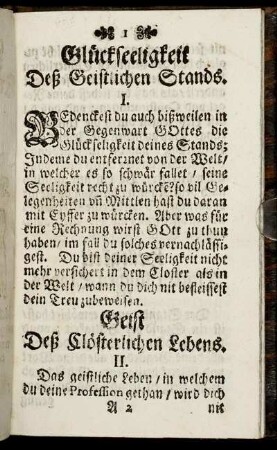 1
Glückseeligkeit
Deß Geistlichen Stands.
I.
BEdenckest du auch bißweilen in
der Gegenwart GOttes die
Glückseligkeit deines Stands;
Indeme du entfernet von der Welt/
in welcher es so schwär fallet / seine
Seeligkeit recht zu würckē? so vil Ge-
legenheiten uñ Mittlen hast du daran
mit Eyffer zu würcken. Aber was für
eine Rechnung wirst GOtt zu thun
haben / im fall du solches vernachlässi-
gest. Du bist deiner Seeligkeit nicht
mehr versichert in dem Closter als in
der Welt / wann du dich nit befleissest
dein Treu zubeweisen.
Geist
Deß Clösterlichen Lebens.
II.
Das geistliche Leben / in welchem
du deine Profession gethan / wird dich
A 2 nit